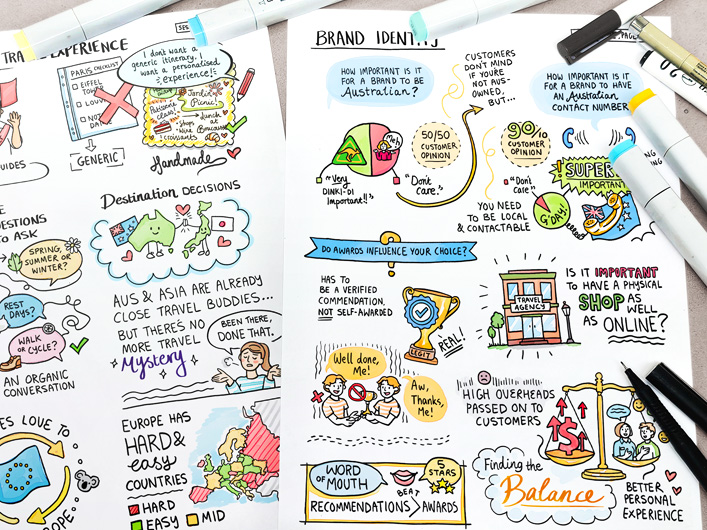 TRA EXPERIENCE
SES
I don't want a
generic itinerary. I
want a personalised
experience!
PARIS CHECKLIST
EIFFEL
TOW
LOU
NOT
DA
GENERIC
Patisserie
class!
Jardin
Picnic!
Shops
Wine
Croissants
lunch
at
Handmade
UIDES
Destination DECISIONS
ESTIONS
O ASK
SPRING,
SUMMER OR
WINTER?
REST
DAYS?
WALK
OR CYCLE?
AN ORGANIC
CONVERSATION
AUS & ASIA ARE ALREADY
CLOSE TRAVEL BUDDIES...
BUT THERE'S NO
MORE TRAVEL
Mystery
BEEN THERE,
DONE THAT.
ES LOVE TO
OPE
EUROPE HAS
HARD &
easy
COUNTRIES
HARD
EASY
MID
BRAND IDENTITY
PAGE
HOW IMPORTANT IS IT
FOR A BRAND TO BE
Australian?
CUSTOMERS
DON'T MIND
IF YOU'RE
NOT AUS-
OWNED,
BUT...
HOW IMPORTANT IS IT
FOR A BRAND TO HAVE
AN Australian
CONTACT NUMBER
Meh
50/50
CUSTOMER
OPINION
90%
CUSTOMER
OPINION
~Very
DINKI-DI
Important!!~
"Don't
Care."
"Don't
Care"
YOU NEED
TO BE LOCAL
& CONTACTABLE
SUPER
IMPORTANT
G'DAY!
DO AWARDS INFLUENCE YOUR CHOICE?
HAS TO
BE A VERIFIED
COMMENDATION,
NOT SELF-AWARDED
LEGIT
REAL!
TRAVEL
AGENCY
IS IT IMPORTANT
TO HAVE A PHYSICAL
SHOP AS WELL
AS ONLINE?
Well done,
Me!
Aw,
Thanks,
Me!
HIGH OVERHEADS
PASSED ON TO
CUSTOMERS
Finding the
Balance
BETTER
PERSONAL
EXPERIENCE
WORD
OF
MOUTH
5
STARS
RECOMMENDATIONS
BEAT
>
AWARDS